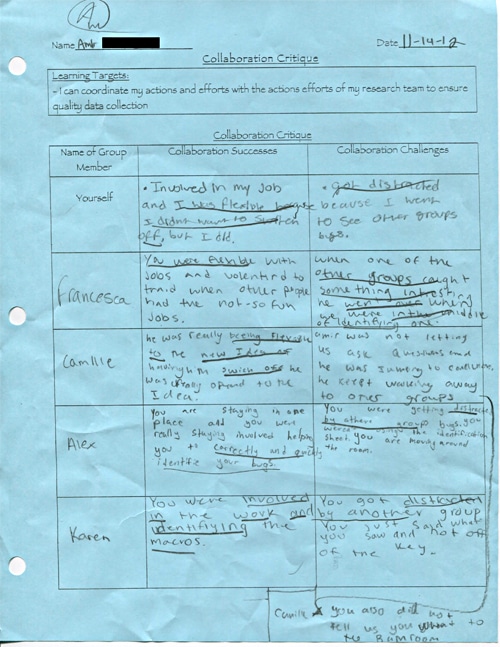 Am
Name Amir
Date 11-14-12
Collaboration Critique
Learning Targets:
- I can coordinate my actions and efforts with the actions efforts of my research team to ensure
quality data collection
Collaboration Critique
Name of Group
Member
Collaboration Successes
Collaboration Challenges
Yourself
• Involved in my job
and I was flexible
I didn't want to switch
off, but I did.
• got distracted
because I went
to see other groups
bugs.
Francesca
You were flexible with
Jobs and volenterd to
traid when other people
had the not-so fun
Jobs.
when one of the
other groups caught
something intresting
he went over when
we were in the middle
of Identifying one.
Camille
he was really being flexable
to the new Idea of
switch off he
was opend to the
Idea.
amir was not letting
us ask questions and
he was
he kept walking away
to other groups
Alex
You are staying in one
place and you were
really staying involved helping
you to correctly and quickly
identifie your bugs.
You were getting distracted
by athore group bugs, you
the identification
sheet. you are moving around
the room.
Karen
You were involved
in the work and
identifying the
macros.
You got distracted
by another group
You just said what
you saw and not off
of the key.
Camille
you also did not
tell us you went to
the Bathroom